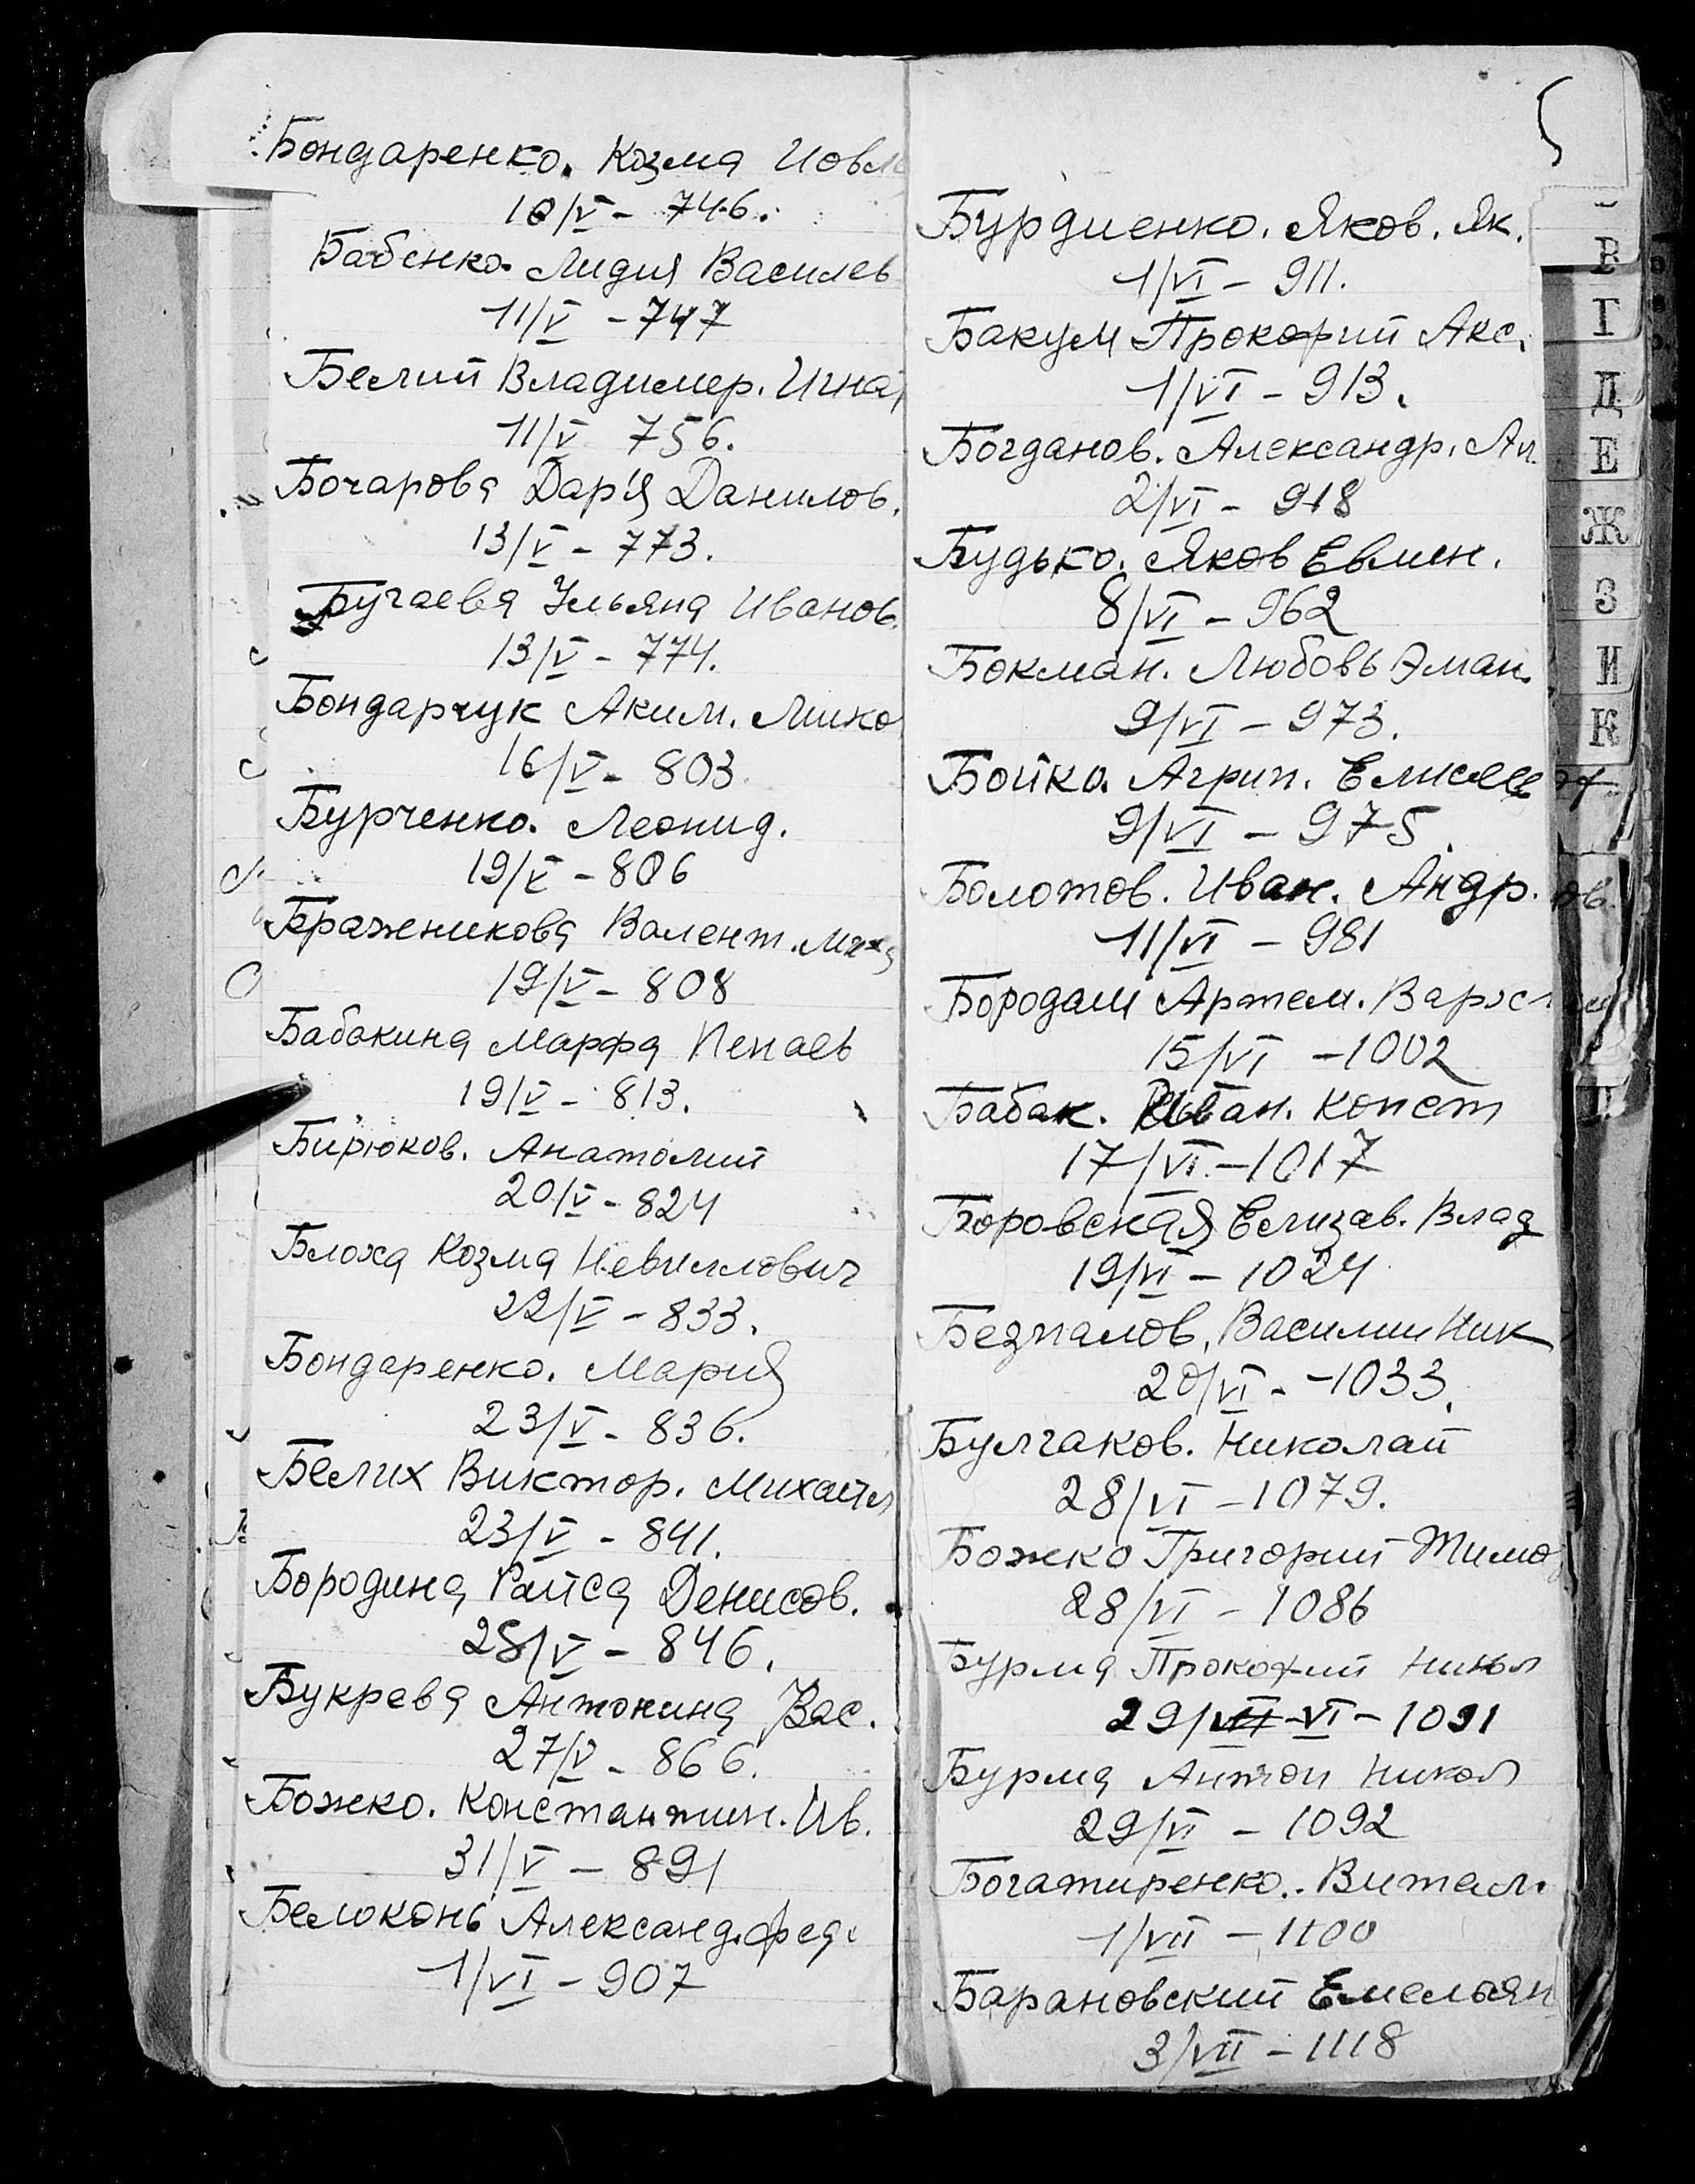 Бондаренко. Козма Иовл
10/V - 746.
Бабенко. Лидия Василев
11/V - 747
Белий Владимер. Игна
11/V 756.
Бочарова Дар'я Данилов.
13/V - 773.
Бугаева Ульяна Иванов.
13/V - 774.
Бондарчук Аким. Мино
16/V - 803
Бурченко. Леонид.
19/V - 806
Бражникова Валент. Миха
19/V - 808
Бабакина Марфа
19/V - 813.
Бирюков. Анатолий
20/V - 824
Блоха Козма
22/V - 833.
Бондаренко. Мария
23/V - 836.
Белих Виктор. Михаил
23/V - 841.
Бородина Раиса Денисов.
25/V - 846.
Букрева Антонина Вас.
27/V - 866.
Божко. Константин. Ив.
31/V - 891
Белоконь Александ. Фед.
1/VI - 907
Бурдиенко. Яков. Як.
1/VI - 911.
Бакум Прокофий Акс.
1/VI - 913.
Богданов. Александр. Ал.
2/VI - 918
Будько. Яков Евмен.
8/VI - 962
Бокман. Любовь Эман.
9/VI - 973.
Бойко. Агрип. Елисеев
9/VI - 975.
Болотов. Иван. Андр.
11/VI - 981
Бородай Артем.
15/VI - 1002
Бабак. Иван. Конст
17/VI - 1017
Боровская Елизав. Влад
19/VI - 1024
Безпалов, Василий Ник
20/VI - 1033.
Булгаков. Николай
28/VI - 1079.
Божко Григорий Тимо
28/VI - 1086
Бурма Прокофий
29/VII VI - 1091
Бурма Антон Никол
29/VI - 1092
Богатиренко.. Витал.
1/VII - 1100
Барановский Емельян
3/VII - 1118
В
Г
Д
Е
Ж
З
И
К